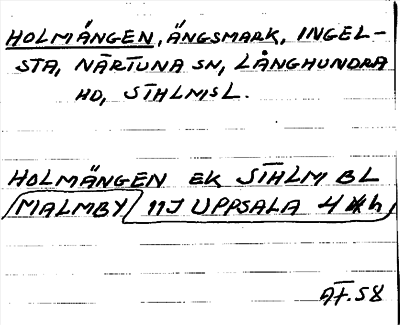 HOLMÄNGEN, ÄNGSMARK, INGEL-
STA, NÄRTUNA SN, LÅNGHUNDRA
HD, STHLMSL.
HOLMÄNGEN EK STHLM BL
MALMBY 11J UPPSALA 4 h
AF.58